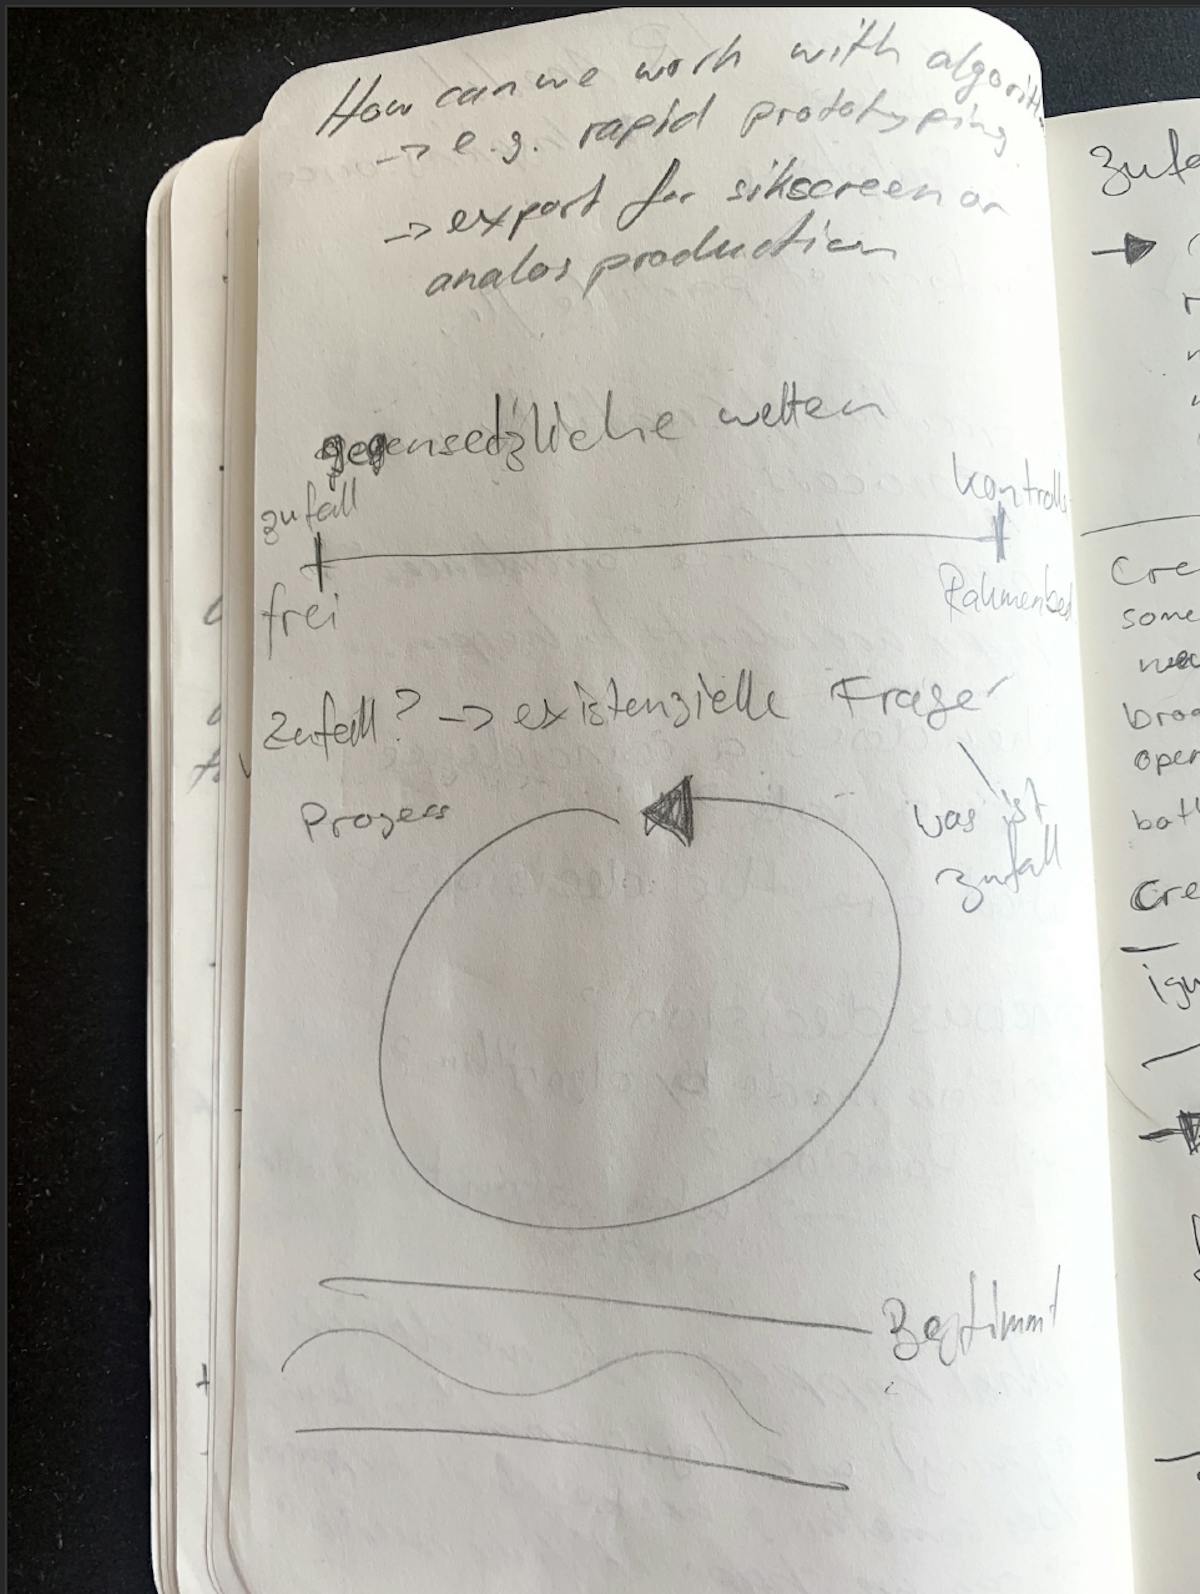 How can we work with algorith
-> e.g. rapid prototyping
-> export for silkscreen or
analog production
gegensetzliche welten
zufall
Kontroll
frei
Rahmenbed
Zufall? -> existenzielle Frage
Prozess
was ist
zufall
Bestimmt
Zufa
Cre
some
broa
open
bot
Cre